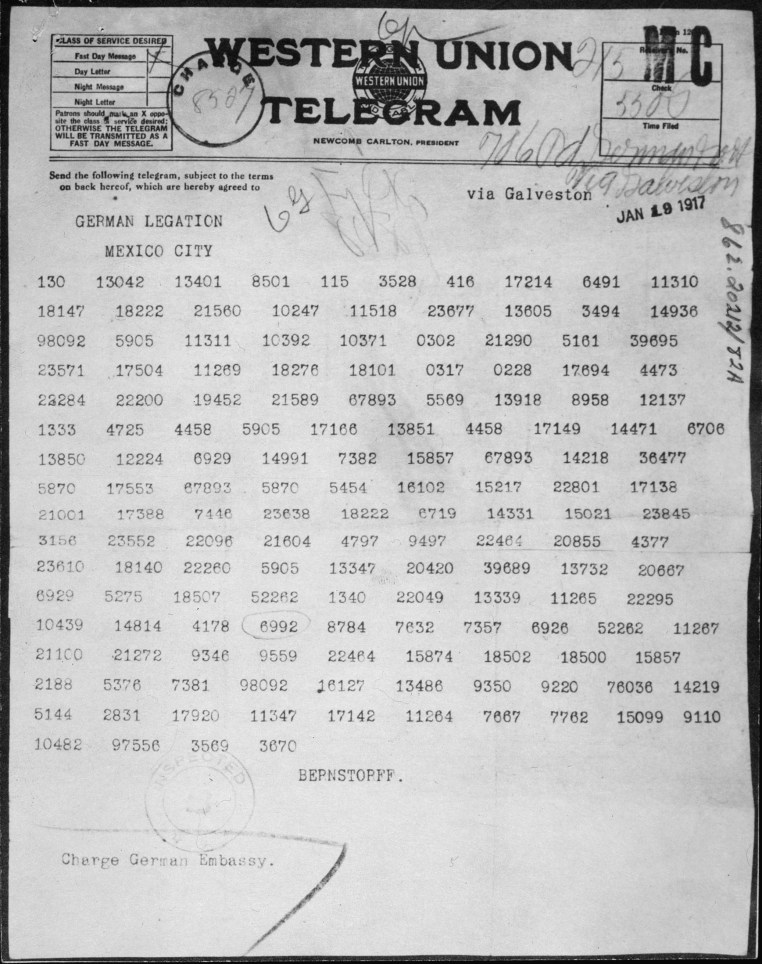 CLASS OF SERVICE DESIRED
Fast Day Message
Day Letter
Night Message
Night Letter
Patrons should mark an X oppo-
site the class of service desired;
OTHERWISE THE TELEGRAM
WILL BE TRANSMITTED AS A
FAST DAY MESSAGE.
CHARGE
WESTERN UNION
WESTERN UNION
TELEGRAM
NEWCOMB CARLTON, PRESIDENT
No.
Check
Time Filed
Send the following telegram, subject to the terms
on back hereof, which are hereby agreed to
via Galveston
Via Galveston
JAN 19 1917
GERMAN LEGATION
MEXICO CITY
130 13042 13401 8501 115 3528 416 17214 6491 11310
18147 18222 21560 10247 11518 23677 13605 3494 14936
98092 5905 11311 10392 10371 0302 21290 5161 39695
23571 17504 11269 18276 18101 0317 0228 17694 4473
22284 22200 19452 21589 67893 5569 13918 8958 12137
1333 4725 4458 5905 17166 13851 4458 17149 14471 6706
13850 12224 6929 14991 7382 15857 67893 14218 36477
5870 17553 67893 5870 5454 16102 15217 22801 17138
21001 17388 7446 23638 18222 6719 14331 15021 23845
3156 23552 22096 21604 4797 9497 22464 20855 4377
23610 18140 22260 5905 13347 20420 39689 13732 20667
6929 5275 18507 52262 1340 22049 13339 11265 22295
10439 14814 4178 6992 8784 7632 7357 6926 52262 11267
21100 21272 9346 9559 22464 15874 18502 18500 15857
2188 5376 7381 98092 16127 13486 9350 9220 76036 14219
5144 2831 17920 11347 17142 11264 7667 7762 15099 9110
10482 97556 3569 3670
BERNSTORFF.
INSPECTED
Charge German Embassy.
862.20212/82A